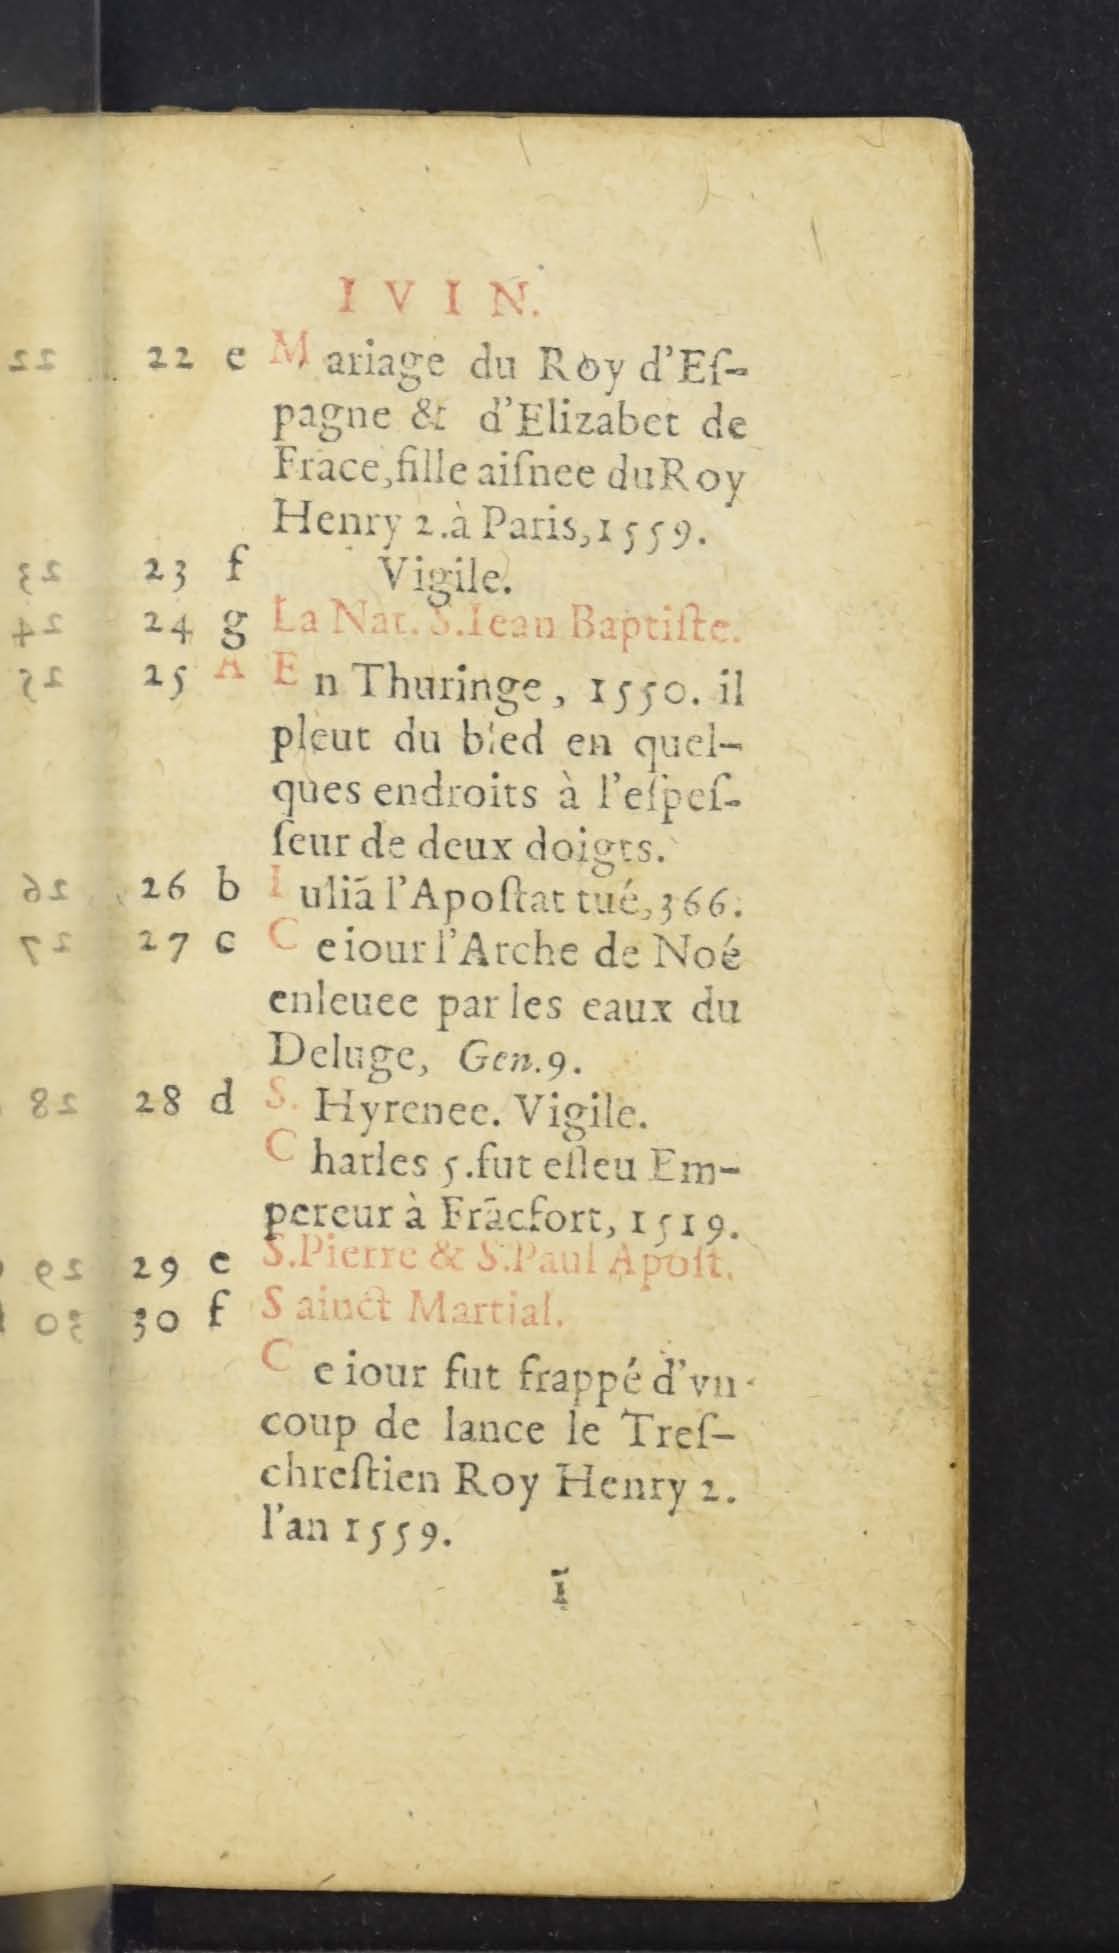 IVIN.
22 e Mariage du Roy d'Eſ-
pagne & d'Elizabet de
Frāce, fille aiſnee du Roy
Henry 2. à Paris, 1559.
23 f Vigile.
24 g La Nat. S. Iean Baptiſte.
25 A En Thuringe, 1550. il
pleut du bled en quel-
ques endroits à l'eſpeſ-
ſeur de deux doigts.
26 b Iuliā l'Apoſtat tué, 366.
27 c Ce iour l'Arche de Noé
enleuee par les eaux du
Deluge, Gen. 9.
28 d S. Hyrenee. Vigile.
Charles 5. fut eſleu Em-
pereur à Frācfort, 1519.
29 e S. Pierre & S. Paul Apoſt.
30 f Sainct Martial.
Ce iour fut frappé d'vn
coup de lance le Treſ-
chreſtien Roy Henry 2.
l'an 1559.
ī